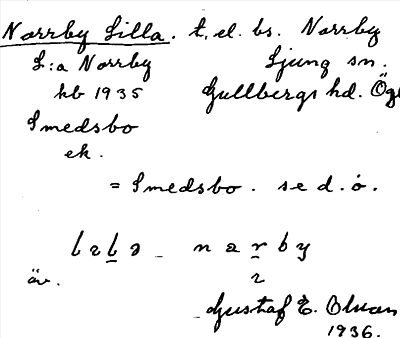 Norrby Lilla. t. el. bs. Norrby
L:a Norrby Ljung sn.
hb 1935 Gullbergs hd. Ögl
Smedsbo
ek.
= Smedsbo. se d. o.
norby
äv.
Gustaf E. Olsson
1936.